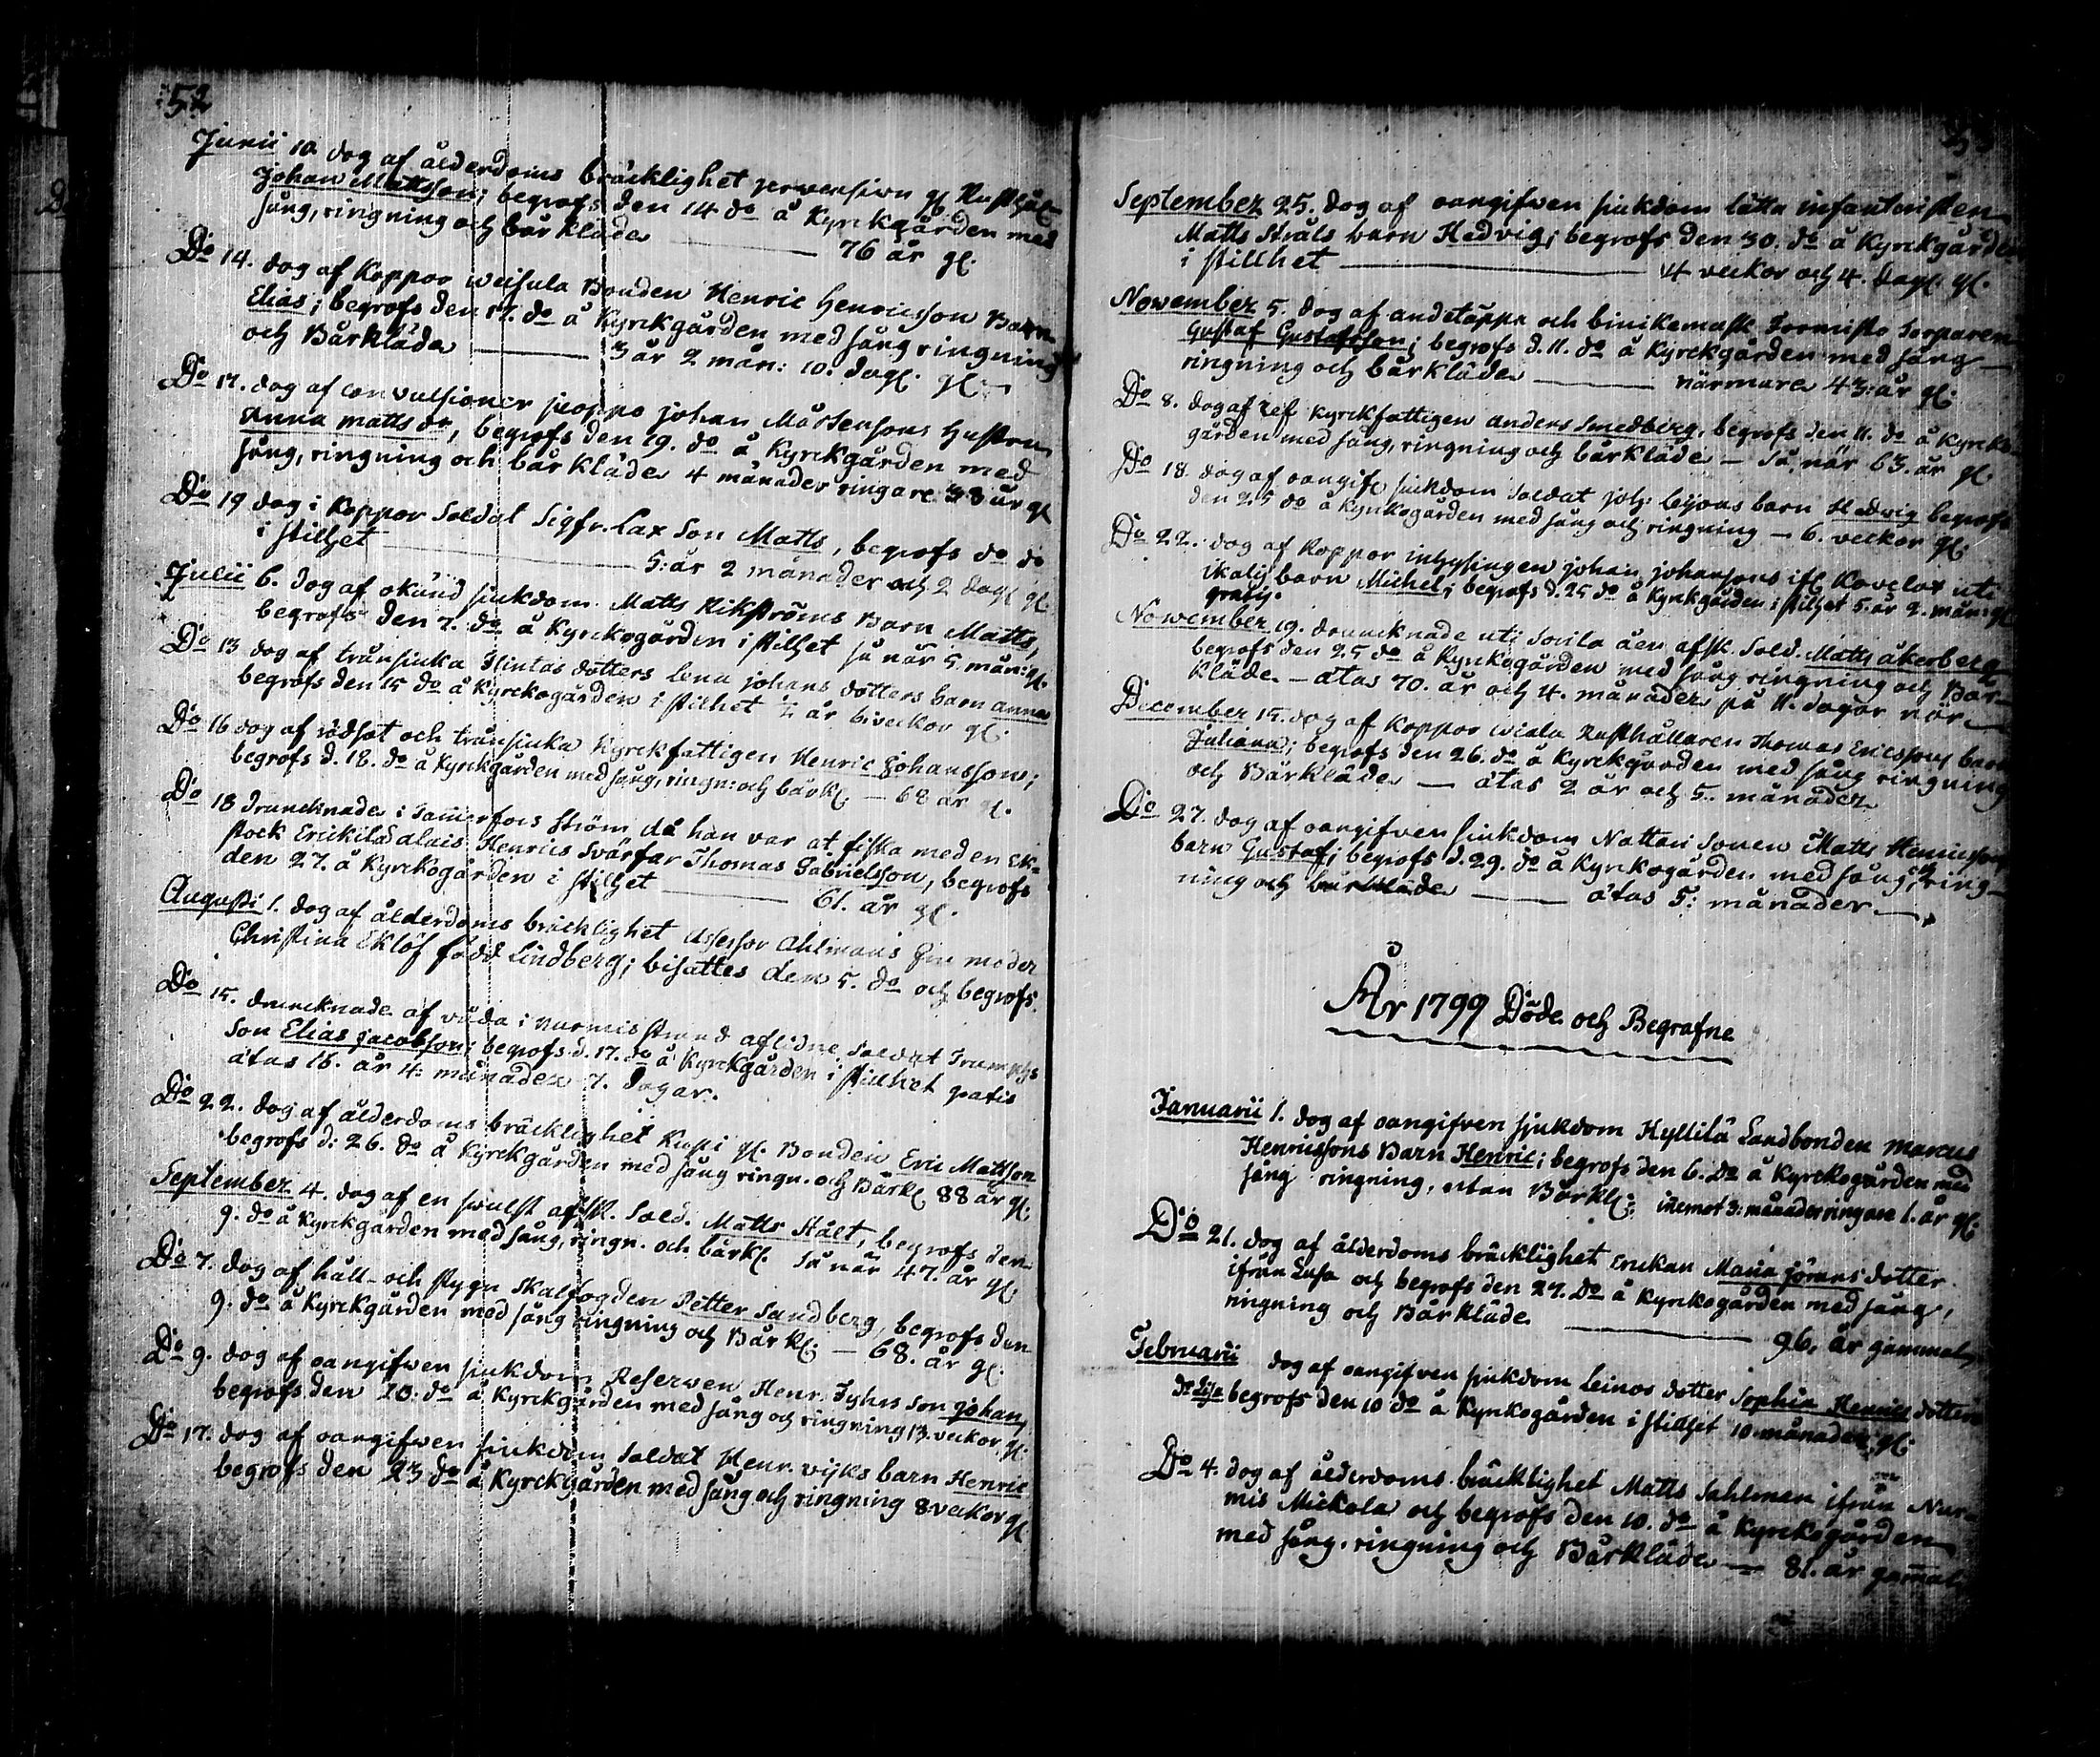 52
Junii 10 dog af ålderdoms bräcklighet gl. Rusthål-
Johan Mattsson; begrofs den 14 do å Kyrkgården med
sång, ringning och bår kläde 76 år gl.
Do 14. dog af Koppor weisula Bonden Henric Henricsson Barn
Elias; begrofs den 17. do å Kyrckgården med sång ringning
och Bårkläde 3 år 2 mån: 10. dagl. gl.
Do 17. dog af convulsioner johan Mårtensons Hustru
Anna matts dr, begrofs den 19. do å Kyrckgården med
sång, ringning och bårkläde 4 månader ringare 38 år gl
Do 19 dog i Koppor Soldat Sigfr. Lax Son Matts, begrofs do do
i stillhet 5: år 2 månader och 2 dagl gl.
Julii 6. dog af okänd siukdom Matts Rikströms Barn Matts,
begrofs den 7. do å Kyrckogården i stillhet så när 5. mån: gl.
Do 13 dog af trånsiuka Flintas dotters Lena johans dotters barn anna
begrofs den 15 do å Kyrckogården i stillhet ½ år 6. veckor gl.
Do 16 dog af rödsot och trånsiuka Kyrckfattigen Henric Johansson;
begrofs d. 18. do å Kyrckgården med sång, ringn: och bårkl. — 68 år gl.
Do 18 Druncknade i Tamerfors Ström då han var at fiska med en Ek-
stock Erickilä dalais Henrics Svärfar Thomas Gabrielsson, begrofs
den 27. å Kyrckogården i stillhet 61. år gl.
Augusti 1. dog af ålderdoms bräcklighet Assessor Ahlmans moder
Christina Eklöf född Lindberg; bisattes den 5. do och begrofs.
Do 15. druncknade af våda i Nurmis strand aflidne Soldat Trumphs
Son Elias jacobsson; begrofs d. 17. do å Kyrckgården i stillhet gratis
ätas 16. år 4: månader 7. dagar.
Do 22. dog af ålderdoms bräcklighet gl. Bonden Eric Mattsson
begrofs d: 26. do å Kyrckgården med sång ringn. och Bårkl. 88 år gl.
September 4. dog af en swulst afsk. Sold. Matts Stålt, begrofs den
9. do å Kyrckgården med sång, ringn. och bårkl. så när 47. år gl.
Do 7. dog af håll- och stygn skalfogden Petter Sandberg, begrofs den
9. do å Kyrckgården med sång ringning och Bårkl: — 68. år gl.
Do 9. dog af oangifwen siukdom Reserwen Henr. Son johan,
begrofs den 20. do å Kyrckgården med sång och ringning 13. veckor gl.
Do 17. dog af oangifwen siukdom Soldat Henr. vijks barn Henric
begrofs den 23 do å Kyrckgården med sång och ringning 8 veckor gl
53
September 25. dog af oangifwen siukdom lätta infanteristen
Matts Stråls barn Hedvig; begrofs den 30. do å Kyrckgården
i stillhet 4 veckor och 4. dagl. gl.
Nowember 5. dog af andetäppa och binikemask Sorparen
Gustaf Gustafsson; begrofs d. 11. do å Kyrckgården med sång
ringning och bårkläde närmare 43: år gl:
Do 8. dog af ref Kyrckfattigen anders Smedberg, begrofs den 11. do å Kyrcko
gården med sång, ringning och bårkläde — så när 63. år gl
Do 18. dog af oangifl siukdom Soldat joh: lejons barn Hedvig begrofs
den 25 do å Kyrckogården med sång och ringning — 6. veckor gl:
Do 22. dog af Koppor inhysingen johan johansons ifl. uti
barn Michel; begrofs d. 25 do å Kyrckgården i stillhet 5. år 9. mån: gl
gratis.
Nowember 19. druncknade uti Sorila åen afsk. Sold. Matts åkerberg
begrofs den 25 do å Kyrckogården med sång ringning och Bår-
kläde. — ätas 70. år och 4. månader på 11. dagar när
December 15. dog af Koppor Rusthållaren Thomas Ericssons barn
Juliana; begrofs den 26. do å Kyrckgården med sång ringning
och Bårkläde — ätas 2 år och 5. månader
Do 27. dog af oangifven siukdom Nattari Sonen Matts Henricssons
barn Gustaf; begrofs d. 29. do å Kyrckogården med sång, ring-
ning och bårkläde ätas 5: månader.
År 1799 Döde och Begrafne
Januarii 1. dog af oangifven sjukdom Hyllilä Landbonden Marcus
Henricssons Barn Henric; begrofs den 6. do å Kyrckogården med
sång ringning, utan Bårkl: inemot 3: månader ringare 1. år gl.
Do 21. dog af ålderdoms bräcklighet Enckan Maria jörans dotter
ifrån och begrofs den 27. do å Kyrckogården med sång,
ringning och Bårkläde 96, år gammal
Februarii dog af oangifven siukdom leinos dotter Sophia Henrics dotters
dr Lisa begrofs den 10 do å Kyrckogården i stillhet 10. månader gl.
Do 4. dog af ålderdoms bräcklighet Matts Sahlman ifrån Nur-
mis Mickola och begrofs den 10. do å Kyrckogården
med sång, ringning och Bårkläde — 81. år gamal